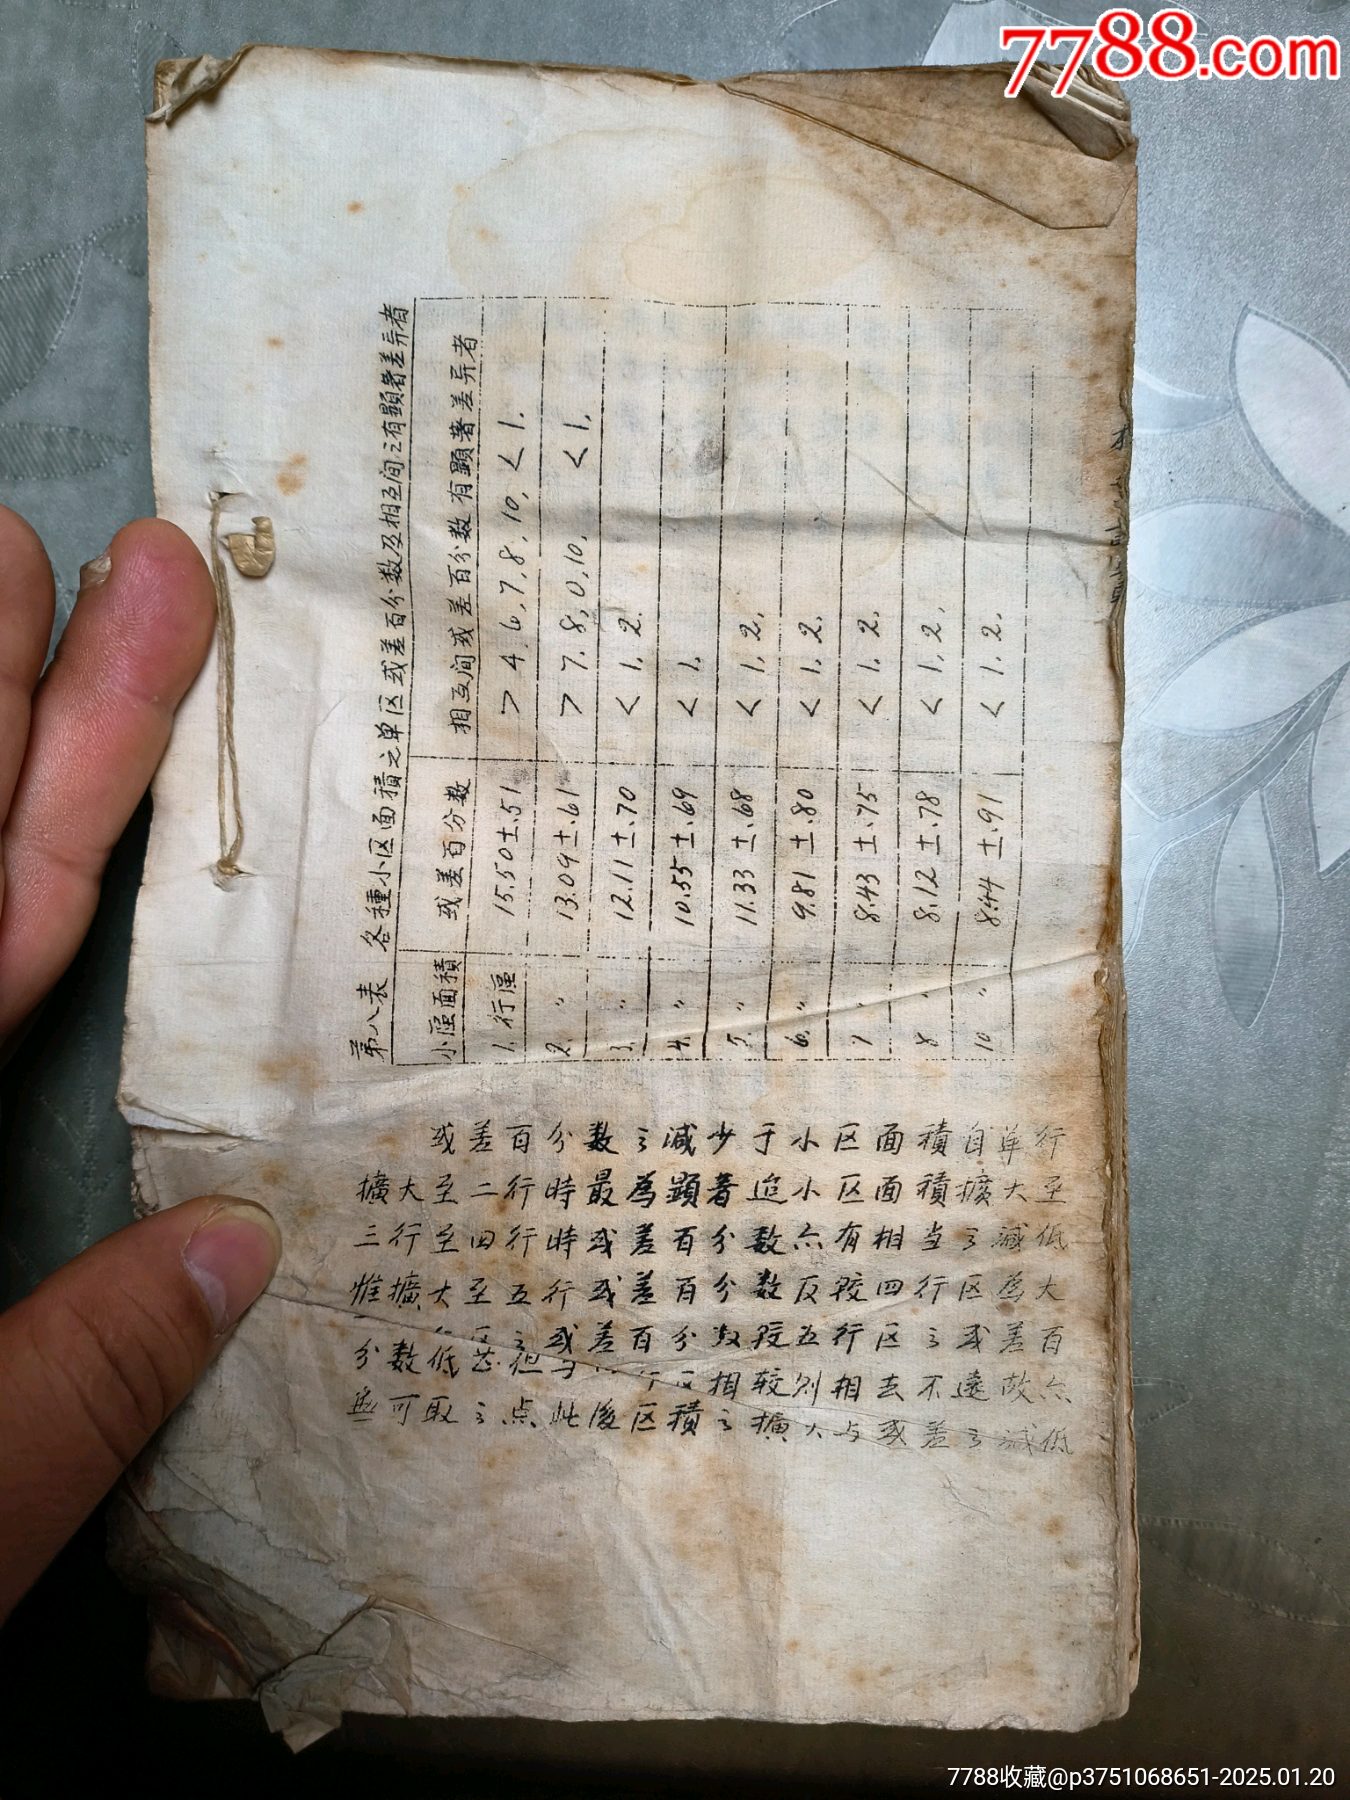 7788.com
第八表 各種小区面積之单区或差百分数及相互间之有顯著差异者
小區面積 或差百分数 相互间或差百分数有顯著差异者
1. 行區 15.50±.51 > 4, 6, 7, 8, 10, < 1.
2. 〃 13.09±.61 > 7. 8, 0, 10, < 1,
3. 〃 12.11±.70 < 1, 2.
4. 〃 10.55±.69 < 1,
5. 〃 11.33±.68 < 1, 2,
6. 〃 9.81±.80 < 1, 2,
7 〃 8.43±.75 < 1, 2,
8 〃 8.12±.78 < 1, 2,
10 〃 8.44±.91 < 1, 2.
或差百分数之减少于小区面積自单行
擴大至二行時最為顯著迨小区面積擴大至
三行至四行時或差百分数亦有相当之减低
惟擴大至五行或差百分数反較四行区為大
区之或差百分数較五行区之或差百
分数低 但与 行区相较则相去不遠故亦
無可取之点此後区積之擴大与或差之减低
7788收藏@p3751068651-2025.01.20